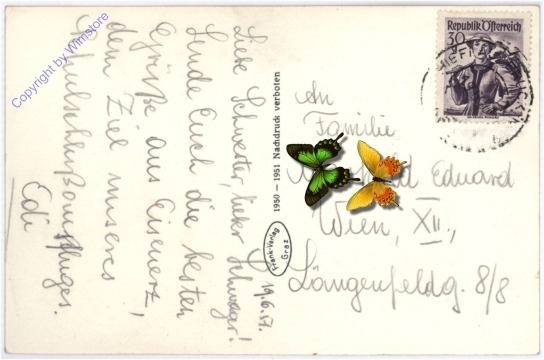 Liebe Schwester, lieber Schwager!
Sende Euch die besten
Grüße aus Eisenerz,
dem Ziel unseres
Betriebsausfluges.
Edi
19.6.51.
1950 – 1951 Nachdruck verboten
Frank-Verlag
Graz
Republik Österreich
30
An
Familie
Eduard
Wien, XII.,
Längenfeldg. 8/8
Copyright by Wimstore